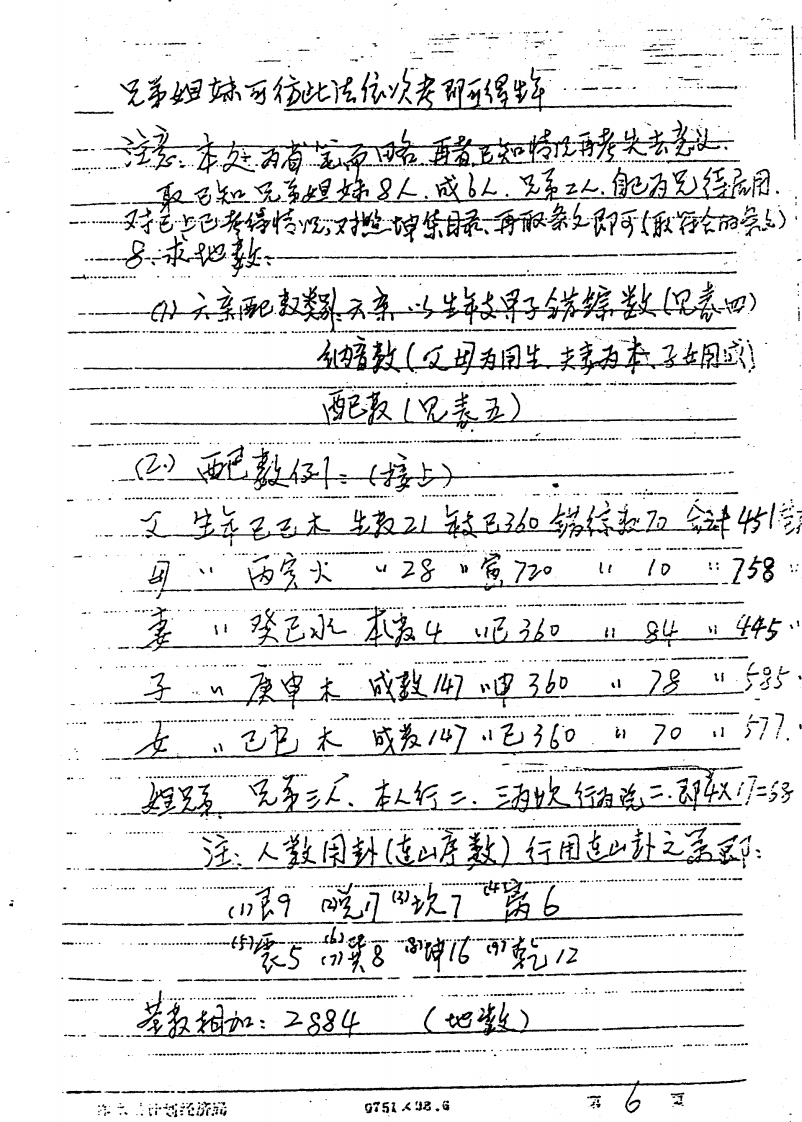 兄弟姐妹可仿此法依次考即可得生年
注意：本处为省笔而略，再者已知情况再考失去意义．
取已知兄弟姐妹8人．成6人．兄弟二人．自己为兄待启用．
对已上已考得情况，对照坤集目录，再取条文即可（取符合的条文）
8：求地数：
(1) 六亲配数类别：六亲：以生年支男子错综数（见表四）
纳音数（父母为用生．夫妻为本．子女用成）
配数（见表五）
(2.) 配数例：（接上）
父 生年己巳木 生数21 年支巳360 错综数70 合计451
母 〃 丙寅火 〃28 〃寅720 〃 10 〃758
妻 〃 癸巳水 本数4 〃巳360 〃 84 〃 445
子 〃 庚申木 成数147 〃申360 〃 78 〃 585
女 〃 己巳木 成数147 〃巳360 〃 70 〃 577.
兄弟三人．本人行二．三为坎 行为兑二．即4×17=68
注：人数用卦（连山序数）行用连山卦之数即：
(1)艮9 (2)兑17 (3)坎7 (4)离6
(5)震5 (6)(7)巽8 (8)坤16 (9)乾12
基数相加：2884 （地数）
计划经济局 9751×98.6 第 6 页